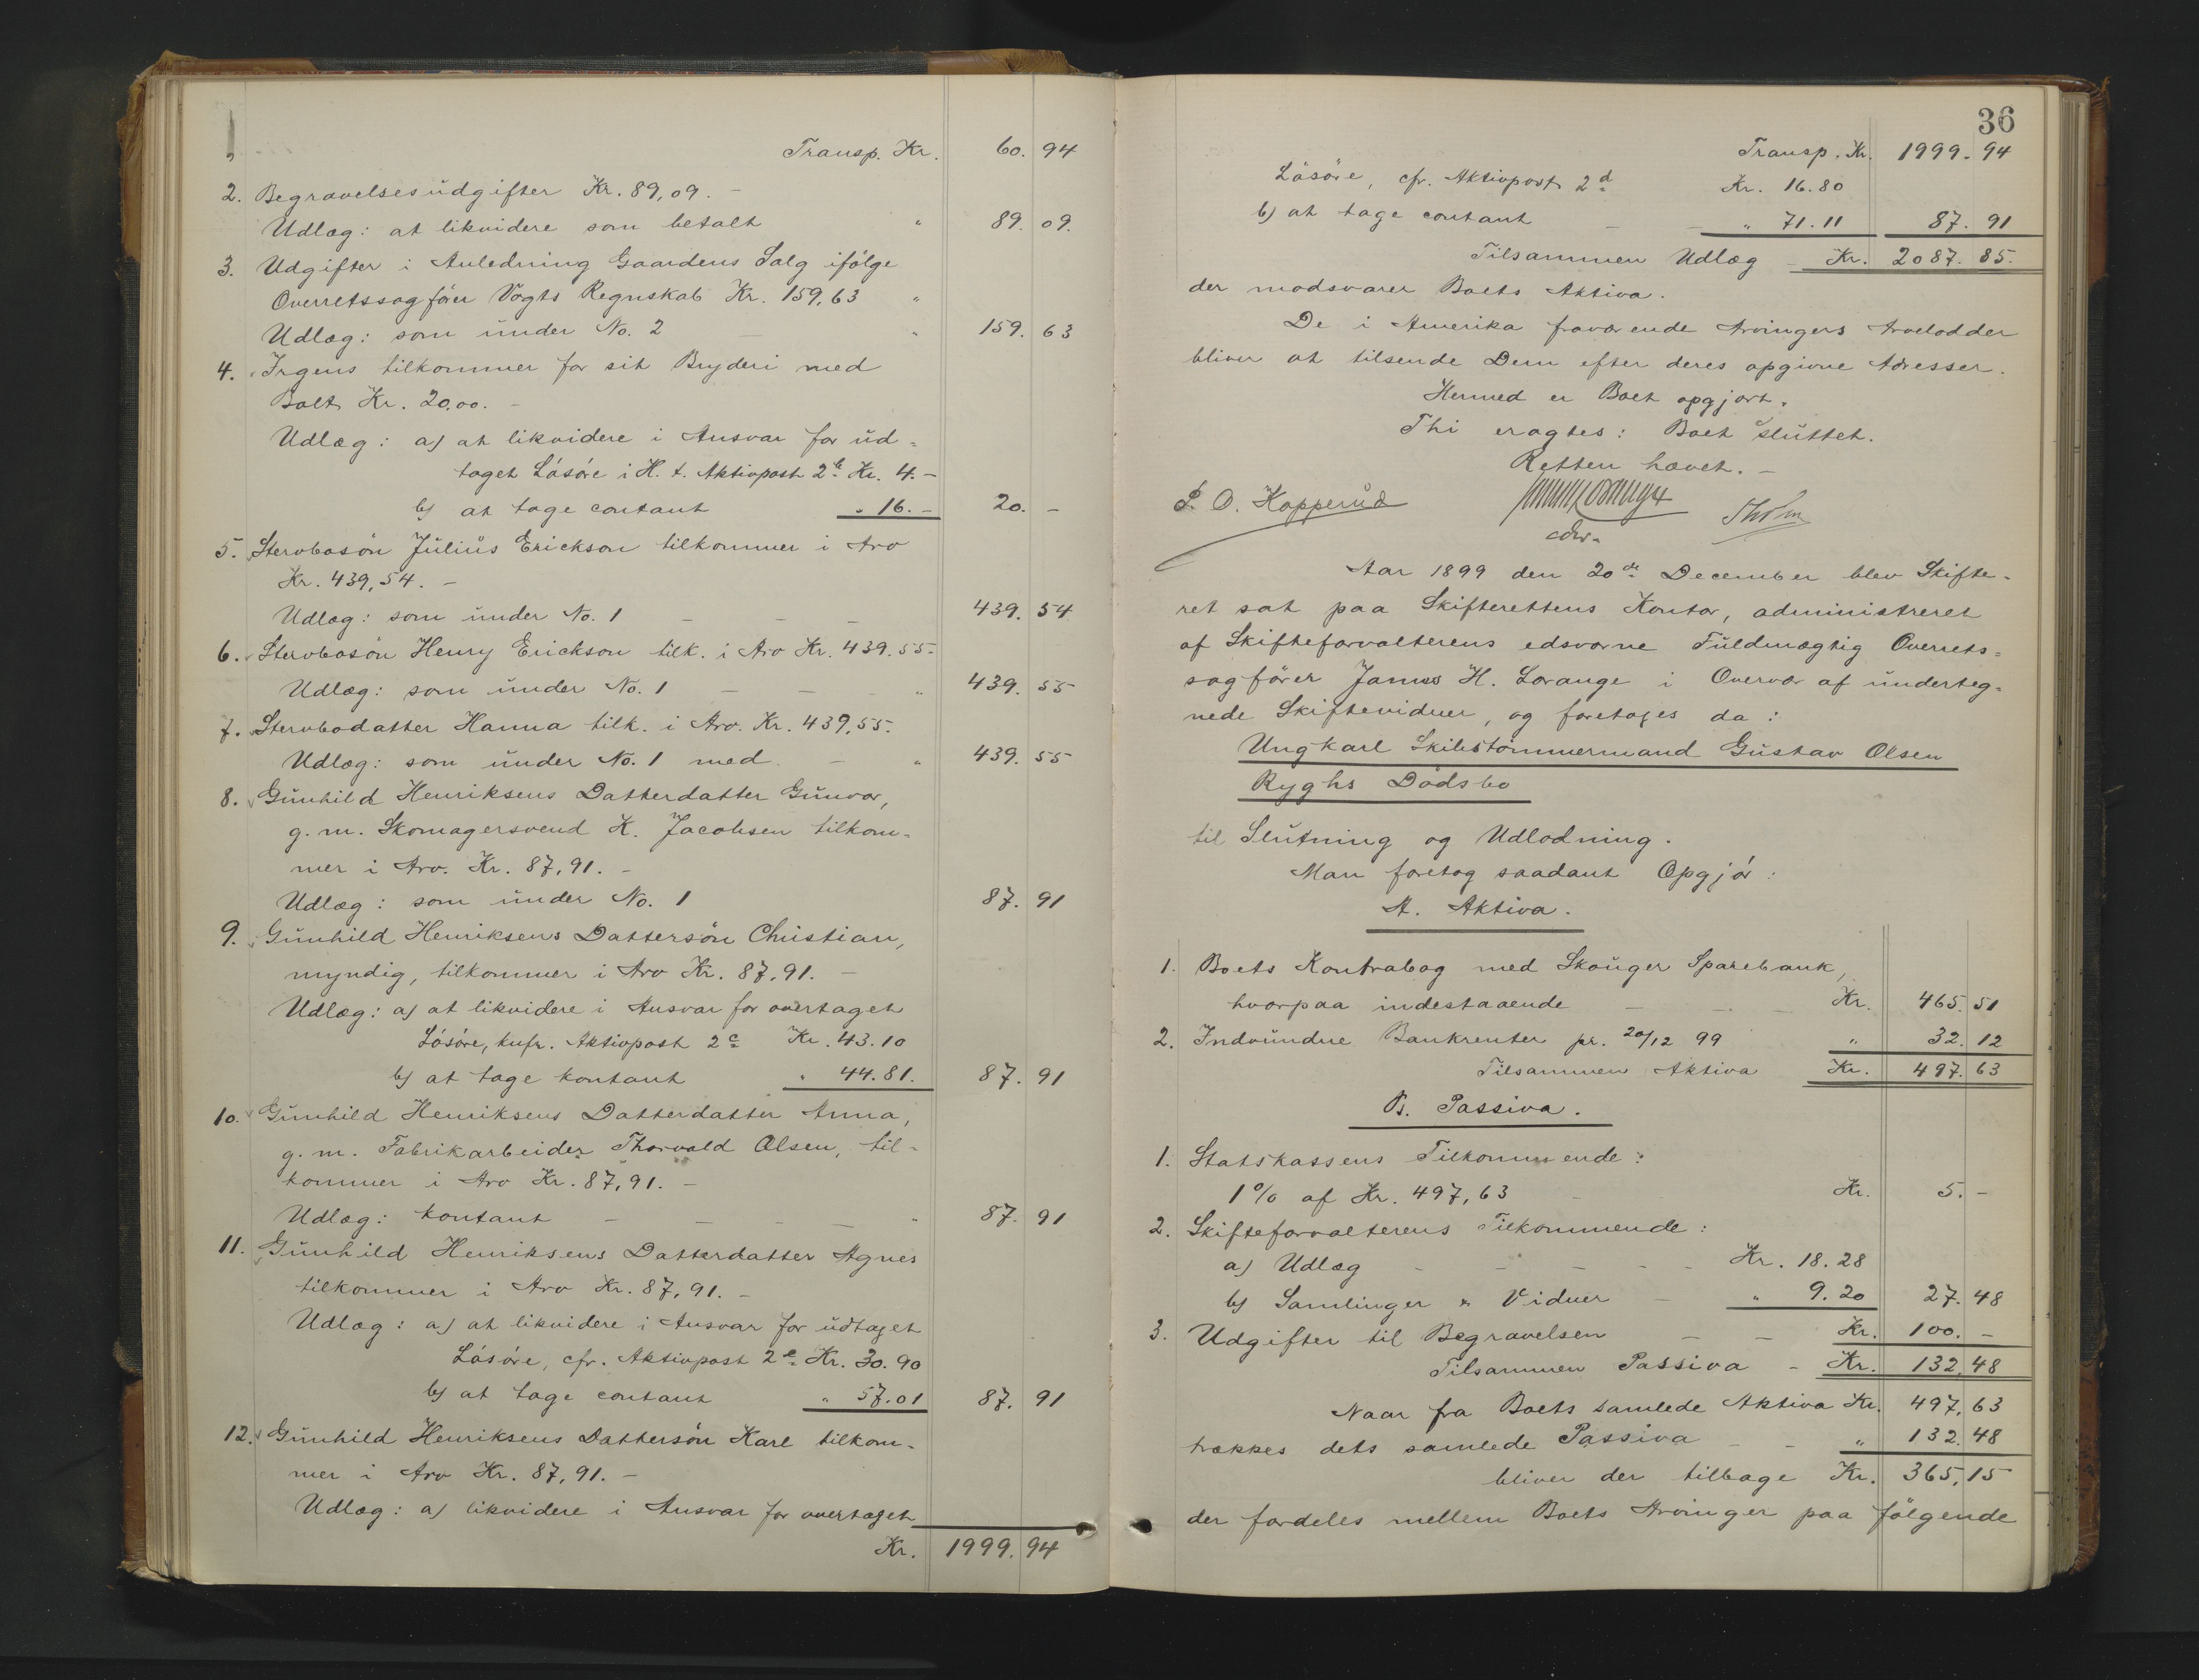 Transp. Kr. 60. 94
2. Begravelsesudgifter Kr. 89,09. –
Udlæg: at likvidere som betalt " 89. 09.
3. Udgifter i Anledning Gaardens Salg ifölge
Overretssagförer Vogts Regnskab Kr. 159,63 "
Udlæg: som under No. 2 – " 159. 63
4. Irgens tilkommer for sit Bryderi med
Boet Kr. 20,00. –
Udlæg: a) at likvidere i Ansvar for ud=
taget Lösöre i H. t. Aktivpost 2b Kr. 4. –
b) at tage contant " 16. – 20. –
5. Stervbosön Julius Erickson tilkommer i Arv
Kr. 439,54. –
Udlæg: som under No. 1 – – – 439. 54
6. Stervbosön Henry Erickson tilk. i Arv Kr. 439.55.
Udlæg: som under No. 1 – – – " 439. 55
7. Stervbodatter Hanna tilk. i Arv. Kr. 439,55.
Udlæg: som under No. 1 med – " 439. 55
8. Gunhild Henriksens Datterdatter Gunvor,
g. m. Skomagersvend K. Jacobsen tilkom=
mer i Arv. Kr. 87,91. –
Udlæg: som under No. 1 87. 91
9. Gunhild Henriksens Dattersön Christian,
myndig, tilkommer i Arv Kr. 87,91. –
Udlæg: a) at likvidere i Ansvar for overtaget
Lösöre, knfr. Aktivpost 2c Kr. 43.10
b) at tage kontant " 44.81. 87. 91
10. Gunhild Henriksens Datterdatter Anna,
g. m. Fabrikarbeider Thorvald Olsen, til-
kommer i Arv Kr. 87,91. –
Udlæg: kontant – – – – " 87. 91
11. Gunhild Henriksens Datterdatter Agnes
tilkommer i Arv Kr. 87,91. –
Udlæg: a) at likvidere i Ansvar for udtaget
Lösöre, cfr. Aktivpost 2e Kr. 30.90
b) at tage contant " 57.01 87. 91
12. Gunhild Henriksens Dattersön Karl tilkom-
mer i Arv Kr. 87,91. –
Udlæg: a) likvidere i Ansvar for overtaget
Kr. 1999. 94
36
Transp. Kr. 1999. 94
Lösöre, cfr. Aktivpost 2d Kr. 16.80
b) at tage contant – – " 71.11 87. 91
Tilsammen Udlæg – Kr. 2087. 85.
der modsvarer Boets Aktiva.
De i Amerika fraværende Arvingers Arvelodder
bliver at tilsende Dem efter deres opgivne Adresser.
Hermed er Boet opgjort.
Thi eragtes: Boet sluttet.
Retten hævet. –
P. O. Kopperud
edsv.
Aar 1899 den 20de December blev Skifte-
ret sat paa Skifterettens Kontor, administreret
af Skifteforvalterens edsvorne Fuldmægtig Overrets=
sagförer James H. Lorange i Overvær af underteg=
nede Skiftevidner, og foretoges da:
Ungkarl Skibstömmermand Gustav Olsen
Ryghs Dödsbo
til Slutning og Udlodning.
Man foretog saadant Opgjör:
A. Aktiva.
1. Boets Kontrabog med Skouger Sparebank,
hvorpaa indestaaende – – – Kr. 465. 51
2. Indvundne Bankrenter pr. 20/12 99 " 32. 12
Tilsammen Aktiva Kr. 497. 63
B. Passiva.
1. Statskassens Tilkommende:
1% af Kr. 497,63 – Kr. 5. –
2. Skifteforvalterens Tilkommende:
a) Udlæg – – – – – Kr. 18.28
b) Samlinger & Vidner – " 9.20 27. 48
3. Udgifter til Begravelsen – – Kr. 100. –
Tilsammen Passiva – Kr. 132. 48
Naar fra Boets samlede Aktiva Kr. 497. 63
trækkes dets samlede Passiva – – " 132. 48
bliver der tilbage Kr. 365,15
der fordeles mellem Boets Arvinger paa fölgende